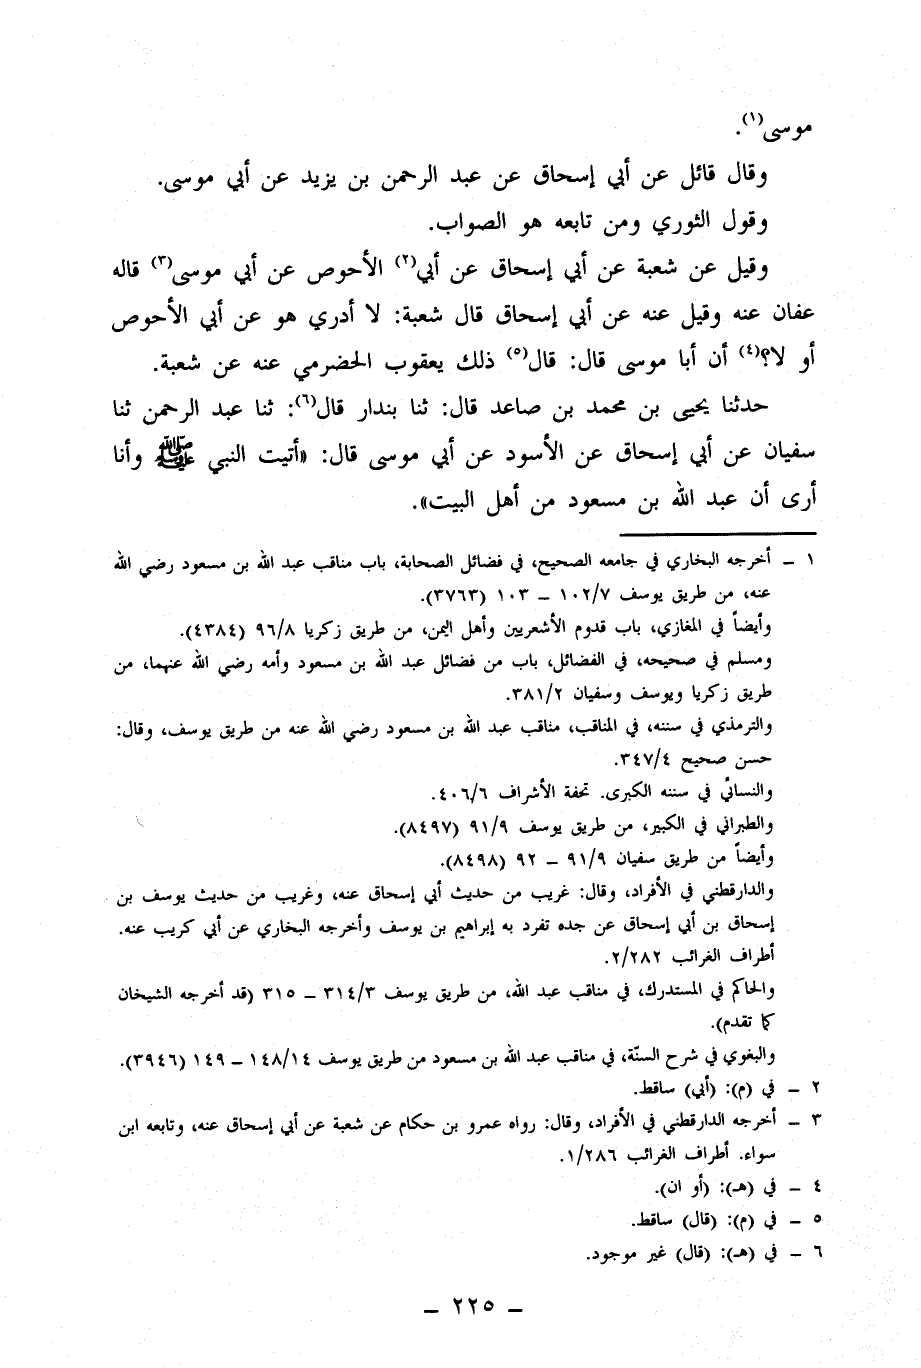 موسى(١).
وقال قائل عن أبي إسحاق عن عبد الرحمن بن يزيد عن أبي موسى.
وقول الثوري ومن تابعه هو الصواب.
وقيل عن شعبة عن أبي إسحاق عن أبي(٢) الأحوص عن أبي موسى(٣) قاله
عفان عنه وقيل عنه عن أبي إسحاق قال شعبة: لا أدري هو عن أبي الأحوص
أو لا؟(٤) أن أبا موسى قال: قال(٥) ذلك يعقوب الحضرمي عنه عن شعبة.
حدثنا يحيى بن محمد بن صاعد قال: ثنا بندار قال(٦): ثنا عبد الرحمن ثنا
سفيان عن أبي إسحاق عن الأسود عن أبي موسى قال: «أتيت النبي ﷺ وأنا
أرى أن عبد الله بن مسعود من أهل البيت».
١ ــ أخرجه البخاري في جامعه الصحيح، في فضائل الصحابة، باب مناقب عبد الله بن مسعود رضي الله
عنه، من طريق يوسف ١٠٢/٧ ــ ١٠٣ (٣٧٦٣).
وأيضاً في المغازي، باب قدوم الأشعريين وأهل اليمن، من طريق زكريا ٩٦/٨ (٤٣٨٤).
ومسلم في صحيحه، في الفضائل، باب من فضائل عبد الله بن مسعود وأمه رضي الله عنهما، من
طريق زكريا ويوسف وسفيان ٣٨١/٢.
والترمذي في سننه، في المناقب، مناقب عبد الله بن مسعود رضي الله عنه من طريق يوسف، وقال:
حسن صحيح ٣٤٧/٤.
والنسائي في سننه الكبرى. تحفة الأشراف ٤٠٦/٦.
والطبراني في الكبير، من طريق يوسف ٩١/٩ (٨٤٩٧).
وأيضاً من طريق سفيان ٩١/٩ ــ ٩٢ (٨٤٩٨).
والدارقطني في الأفراد، وقال: غريب من حديث أبي إسحاق عنه، وغريب من حديث يوسف بن
إسحاق بن أبي إسحاق عن جده تفرد به إبراهيم بن يوسف وأخرجه البخاري عن أبي كريب عنه.
أطراف الغرائب ٢/٢٨٢.
والحاكم في المستدرك، في مناقب عبد الله، من طريق يوسف ٣١٤/٣ ــ ٣١٥ (قد أخرجه الشيخان
كما تقدم).
والبغوي في شرح السنّة، في مناقب عبد الله بن مسعود من طريق يوسف ١٤٨/١٤ ــ ١٤٩ (٣٩٤٦).
٢ ــ في (م): (أبي) ساقط.
٣ ــ أخرجه الدارقطني في الأفراد، وقال: رواه عمرو بن حكام عن شعبة عن أبي إسحاق عنه، وتابعه ابن
سواء. أطراف الغرائب ١/٢٨٦.
٤ ــ في (هـ): (أو ان).
٥ ــ في (م): (قال) ساقط.
٦ ــ في (هـ): (قال) غير موجود.
ــ ٢٢٥ ــ